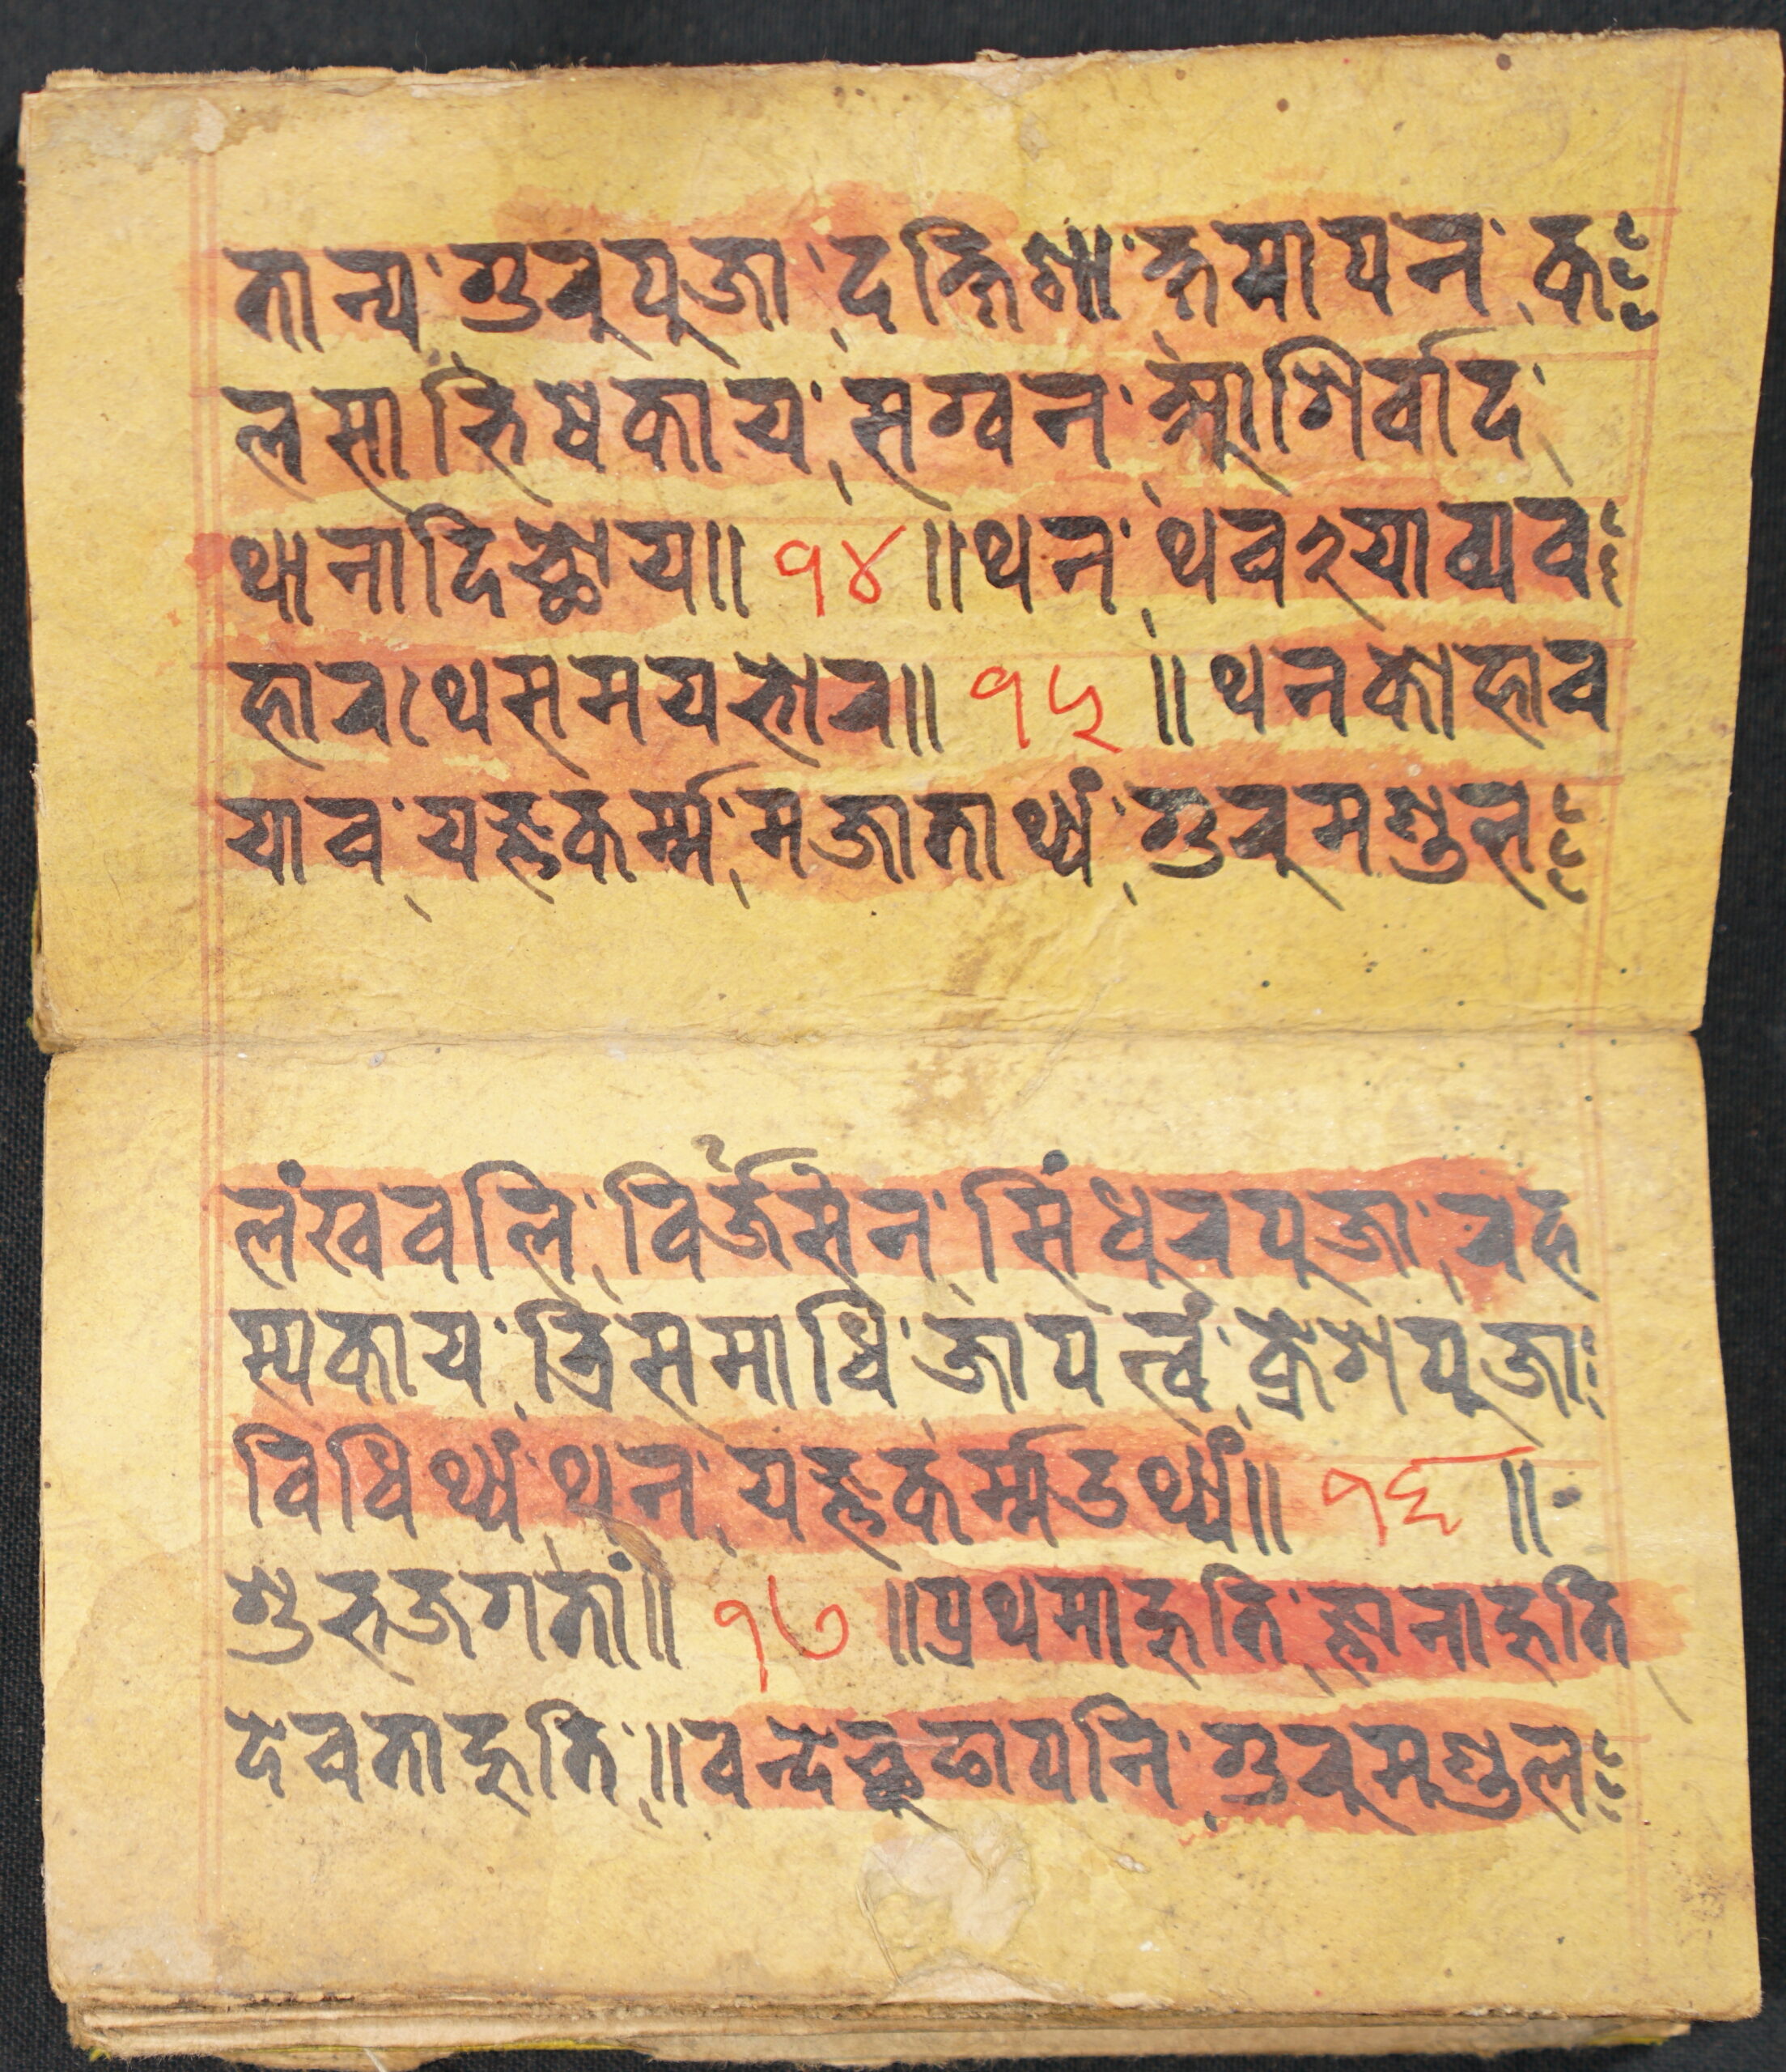 तान्य गुरुपुजा दक्षिणा क्षमापन क
लसाभिषकाय सग्वन आशिर्वाद
थानादिच्छोय॥ १४ ॥थन थव२याव्यव
हारथेसमयभोर॥ १५ ॥थनकोहाव
याव यज्ञकर्म्म मजातार्थ्यं गुरुमण्डल
लंखवलि विर्जसन सिंधुरपुजा रह
स्यकाय त्रिसमाधि जापत्वं क्लेशपुजा
विधिथ्यं थन यज्ञकर्म्मउथ्यं॥ १६ ॥
शुभजगतां॥ १७ ॥प्रथमाहुति ज्ञानाहुति
देवताहुति॥वन्देछुढापनि गुरुमण्डल